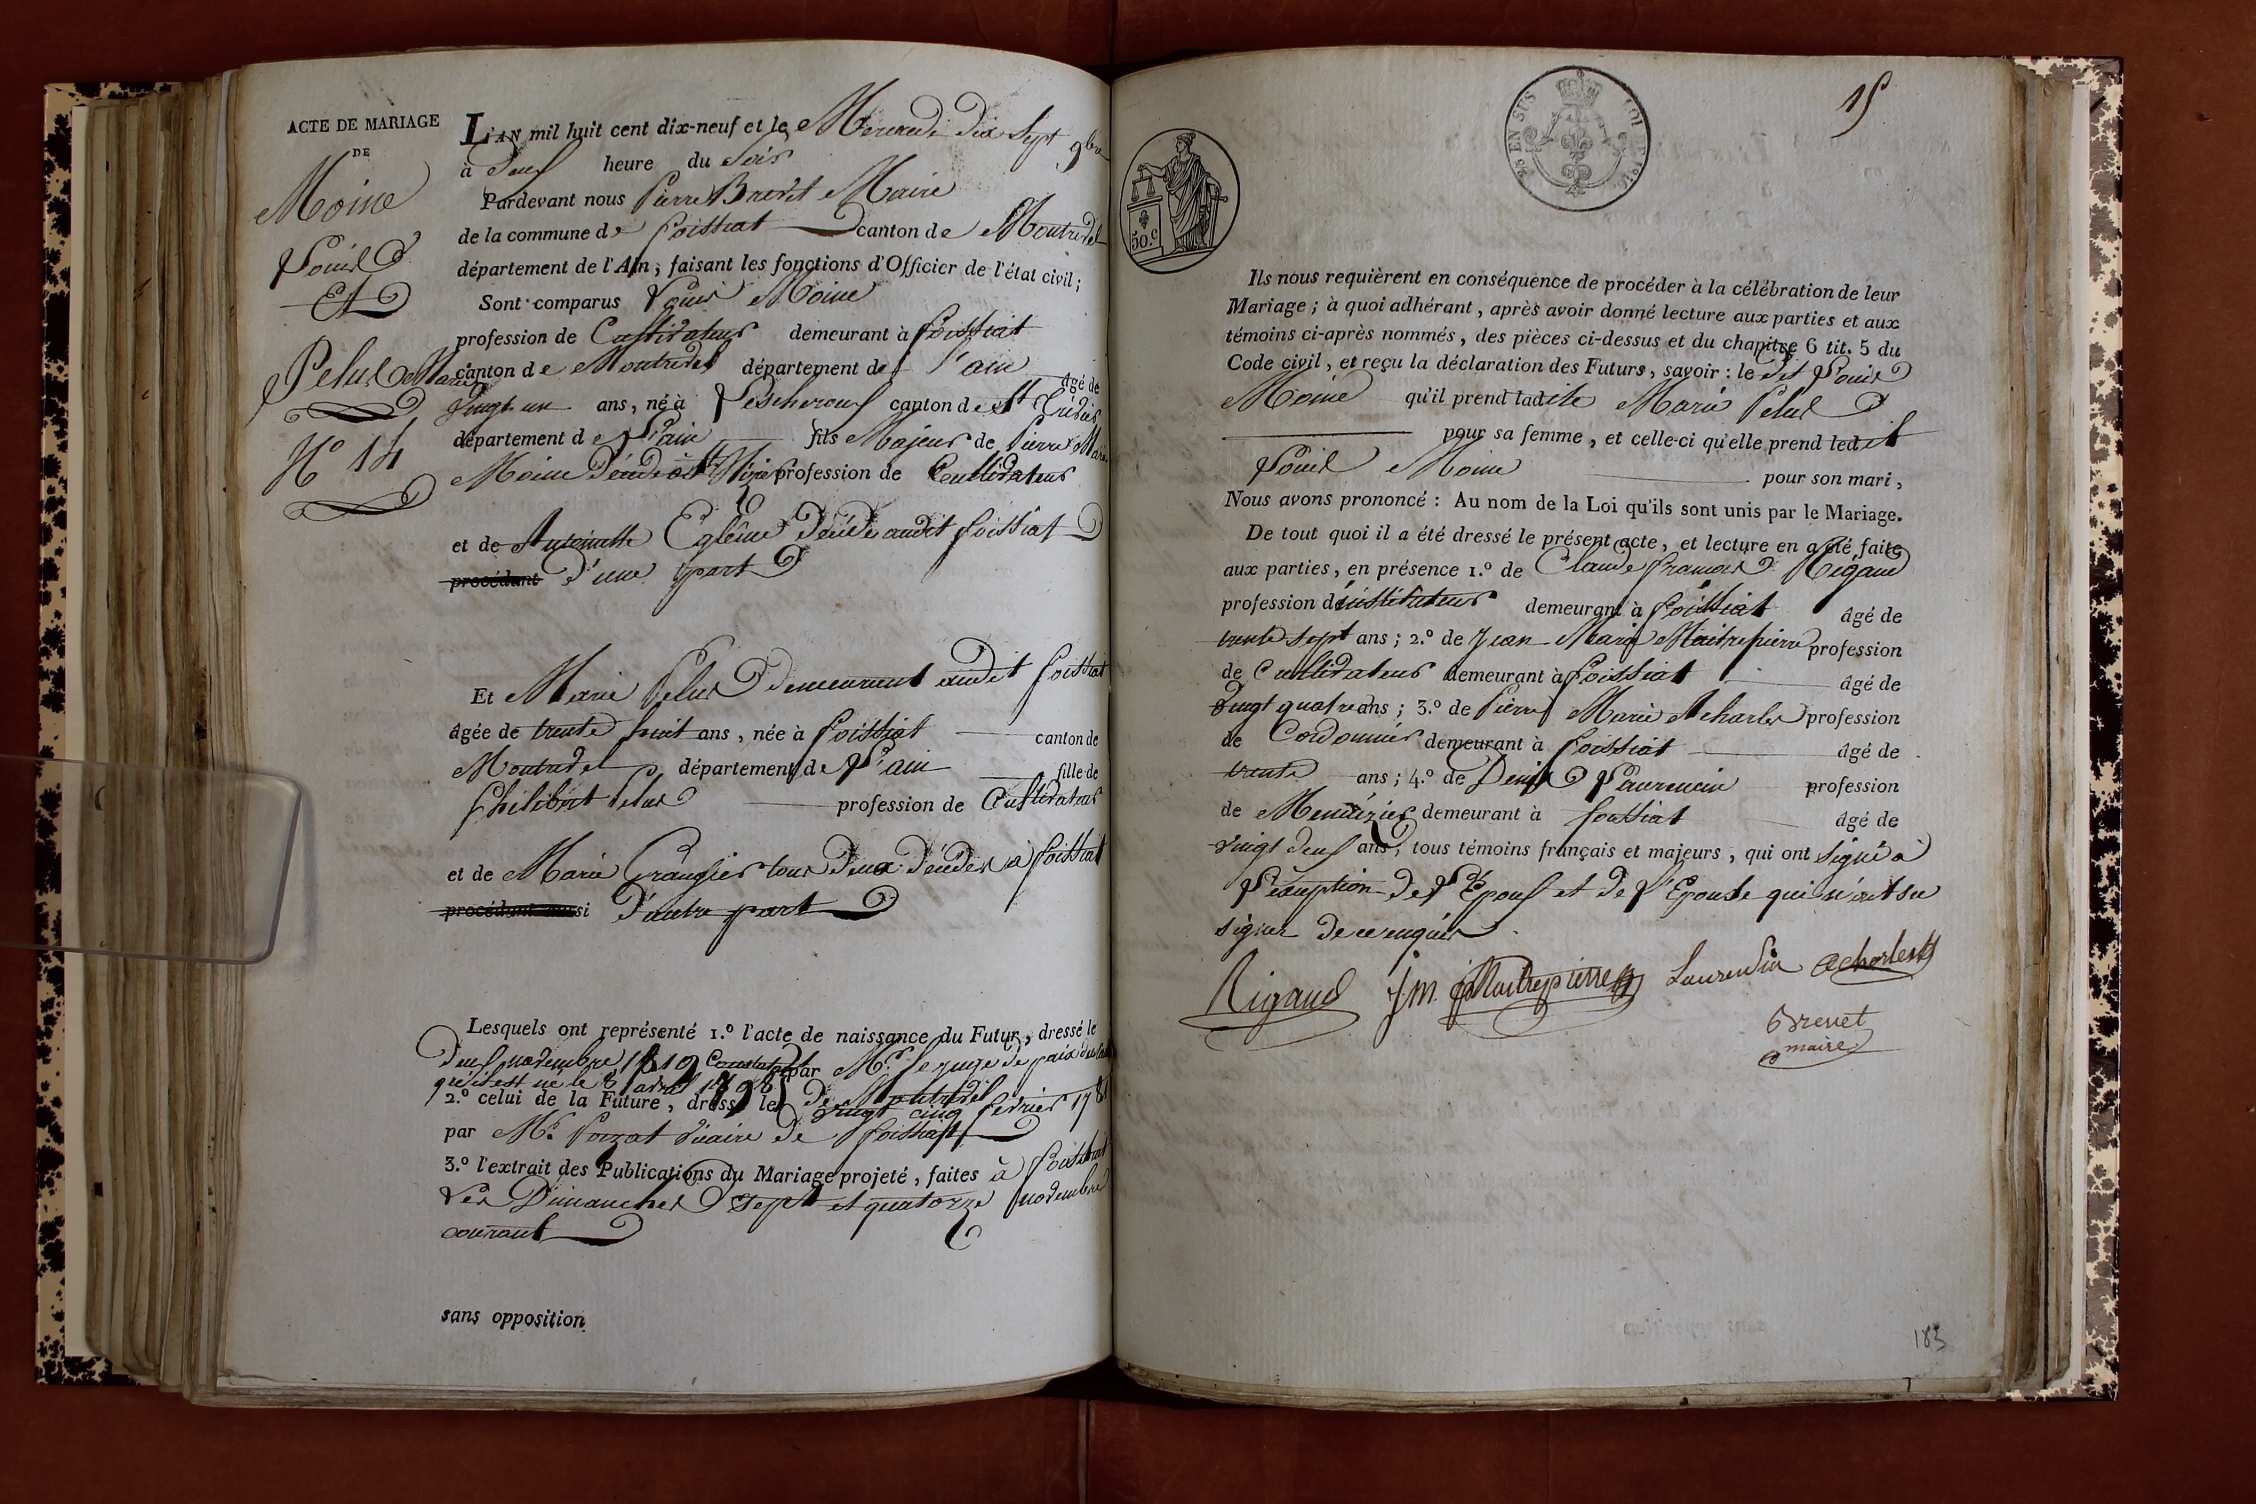 ACTE DE MARIAGE
DE
Moine
Louis
Et
Pelus Marie
N° 14
L'AN mil huit cent dix-neuf et le Mercredi dix Sept 9bre
à Neuf heure du Soir
Pardevant nous Pierre Brevet Maire
de la commune de Foissiat canton de Montrevel
département de l'Ain, faisant les fonctions d'Officier de l'état civil;
Sont comparus Louis Moine
profession de Cultivateur demeurant à Foissiat
canton de Montrevel département de l'ain âgé de
vingt un ans, né à Lescheroux canton de St Trivier
département de L'ain fils Majeur de Pierre Marie
Moine Décédé à St profession de Cultivateur
et de Antoinette Décédée audit foissiat
procédant D'une part
Et Marie Pelus demeurant audit foissiat
âgée de trente huit ans, née à Foissiat canton de
Montrevel département de L'ain fille de
Philibert Pelus profession de Cultivateur
et de Marie Grangier tous deux Décédés à foissiat
procédant aussi D'autre part
Lesquels ont représenté 1.° l'acte de naissance du Futur, dressé le
Neuf novembre 1819 Constatant par Mr. le juge de paix du
qu'il est né le 8 avril 1798 de Montrevel
2.° celui de la Future, dressé le vingt cinq fevrier 1781
par Mr. Poizat vicaire de foissiat
3.° l'extrait des Publications du Mariage projeté, faites à foissiat
Les Dimanches Sept et quatorze novembre
courant
sans opposition
15
25 EN SUS
LOI 1816
50.c
Ils nous requièrent en conséquence de procéder à la célébration de leur
Mariage; à quoi adhérant, après avoir donné lecture aux parties et aux
témoins ci-après nommés, des pièces ci-dessus et du chapitre 6 tit. 5 du
Code civil, et reçu la déclaration des Futurs, savoir: le dit Louis
Moine qu'il prend ladite Marie Pelus
pour sa femme, et celle-ci qu'elle prend ledit
Louis Moine pour son mari,
Nous avons prononcé: Au nom de la Loi qu'ils sont unis par le Mariage.
De tout quoi il a été dressé le présent acte, et lecture en a été faite
aux parties, en présence 1.° de Claude François Rigaud
profession d'instituteur demeurant à Foissiat âgé de
trente sept ans; 2.° de Jean Marie Maitrepierre profession
de Cultivateur demeurant à Foissiat âgé de
vingt quatre ans; 3.° de Pierre Marie Acharles profession
de Cordonnier demeurant à Foissiat âgé de
trente ans; 4.° de Denis Laurencin profession
de Menuizier demeurant à foissiat âgé de
vingt neuf ans, tous témoins français et majeurs, qui ont signé à
L'exception de L'Epoux et de L'Epouse qui n'ont su
signer de ce enquis
Rigaud J m Maitrepierre Laurencin Acharles
Brevet
maire
183